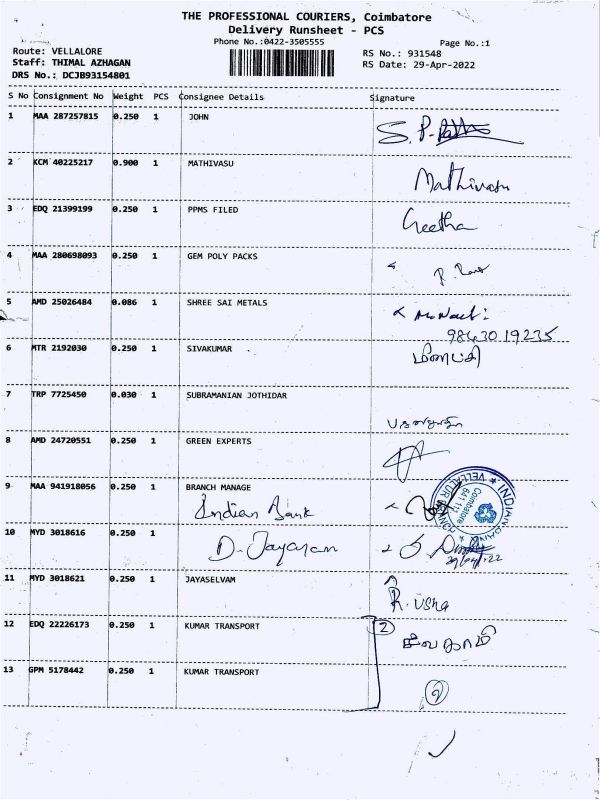 THE PROFESSIONAL COURIERS, Coimbatore
Delivery Runsheet - PCS
Phone No.:0422-3505555
Page No.:1
Route: VELLALORE
RS No.: 931548
Staff: THIMAL AZHAGAN
RS Date: 29-Apr-2022
DRS No.: DCJB93154801
S No Consignment No Weight PCS Consignee Details Signature
1 MAA 287257815 0.250 1 JOHN S.P.
2 KCM 40225217 0.900 1 MATHIVASU Mathivasu
3 EDQ 21399199 0.250 1 PPMS FILED Geetha
4 MAA 280698093 0.250 1 GEM POLY PACKS
5 AMD 25026484 0.086 1 SHREE SAI METALS
98430 19235
6 MTR 2192030 0.250 1 SIVAKUMAR
7 TRP 7725450 0.030 1 SUBRAMANIAN JOTHIDAR
8 AMD 24720551 0.250 1 GREEN EXPERTS
9 MAA 941918056 0.250 1 BRANCH MANAGE
Indian Bank
INDIAN BANK * VELLALUR BRANCH *
Coimbatore
641 111
10 MYD 3018616 0.250 1 D. Jayaram
11 MYD 3018621 0.250 1 JAYASELVAM R. Usha
12 EDQ 22226173 0.250 1 KUMAR TRANSPORT 2 சிவகாமி
13 GPM 5178442 0.250 1 KUMAR TRANSPORT